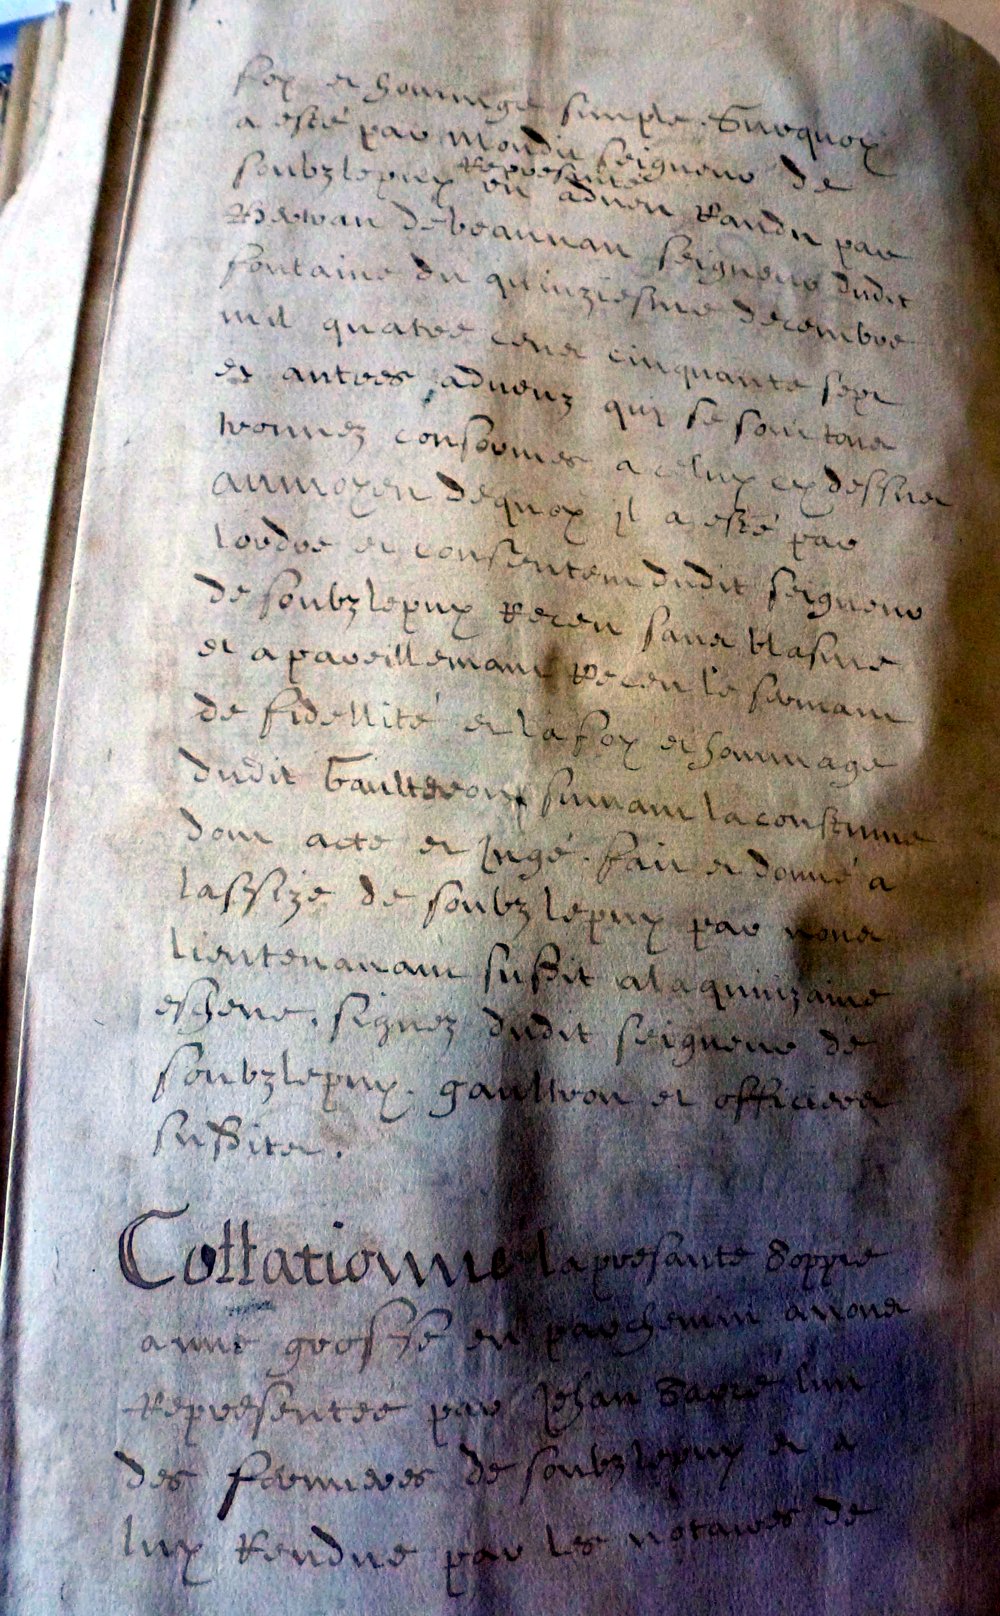 foy et hommage simple. Surquoy
a esté par mondit seigneur de
soubzlepuy representé
un adveu randu par
de beauvau seigneur dudit
fontaine du quinziesme decembre
mil quatre cens cinquante sept
et autres adveuz quy se sont tous
trouvez conformes a celuy cy dessus
au moyen dequoy il a esté par
lordre et consentem dudit seigneur
de soubzlepuy Receu sans blasme
et apareillemant Receu le sermant
de fidellité et la foy et hommage
dudit Gaulteron suivant la coustume
dont acte et Jugé. fait et donné a
lassize de soubzlepuy par nous
lieutenant susdit a la quinzaine
eschene. signez dudit seigneur de
soubzlepuy. gaultron et officiers
susdits.
Collationné la presante Coppie
a une grosse en parchemin a nous
Representée par Jehan lun
des fermiers de soubzlepuy et a
luy Rendue par les notaires de